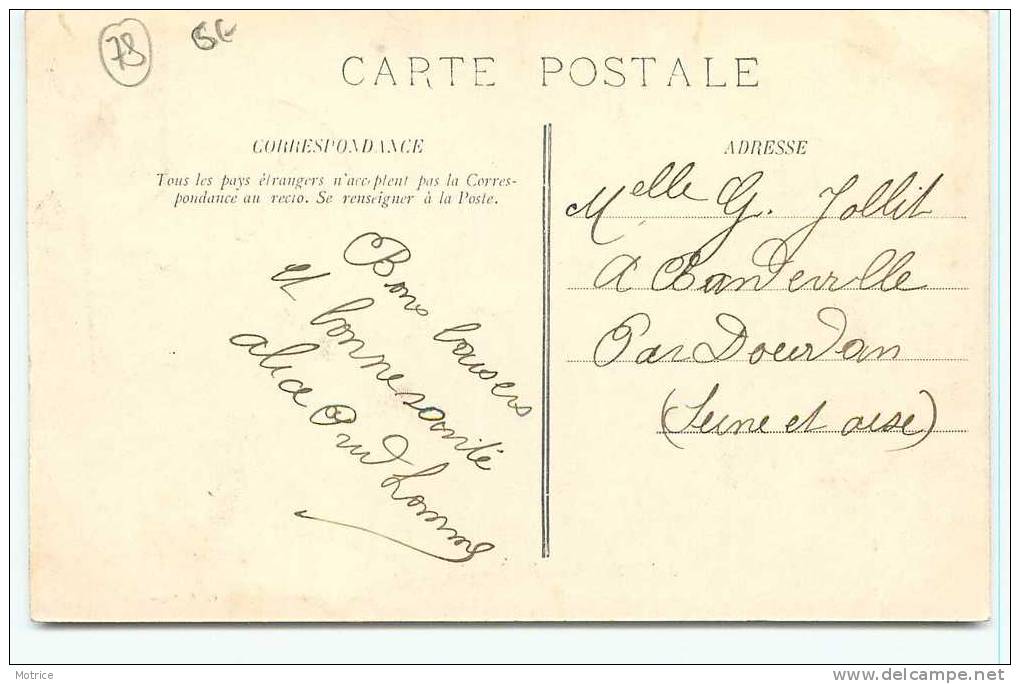 78
CARTE POSTALE
CORRESPONDANCE
Tous les pays étrangers n'acceptent pas la Corres-
pondance au recto. Se renseigner à la Poste.
Bons baisers
et bonne santé
alice Prud homme
ADRESSE
Melle G. Jollit
a Bandeville
Par Dourdan
(Seine et oise)
Motrice
delcampe.net